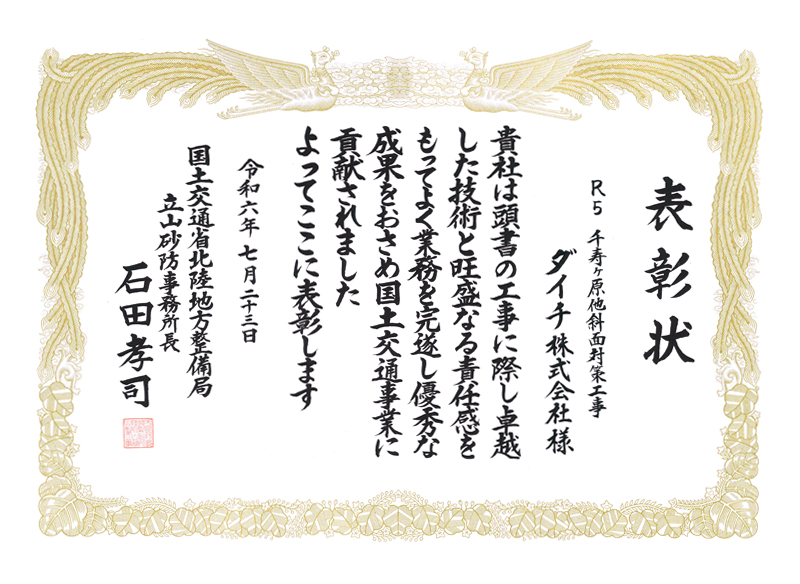 表彰状
R5 千寿ヶ原他斜面対策工事
ダイチ株式会社 様
貴社は頭書の工事に際し卓越
した技術と旺盛なる責任感を
もってよく業務を完遂し優秀な
成果をおさめ国土交通事業に
貢献されました
よってここに表彰します
令和六年 七月二十三日
国土交通省北陸地方整備局
立山砂防事務所長
石田孝司